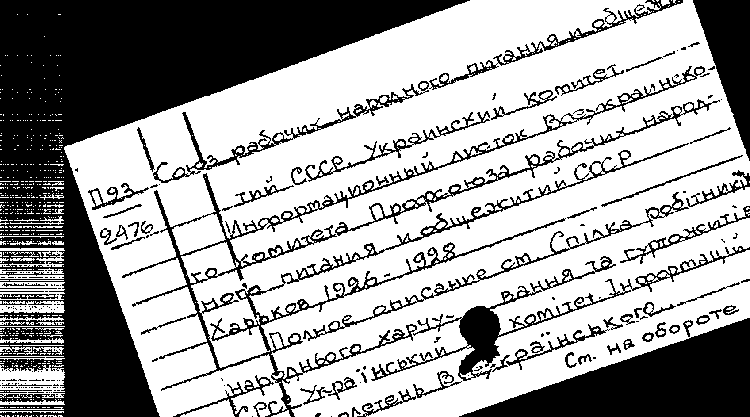 Союз рабочих народного питания и общежи-
П93
2476
тий СССР. Украинский комитет.
Информационный листок Всеукраинско-
го комитета Профсоюза рабочих народ-
ного питания и общежитий СССР
Харьков, 1926 - 1928
Полное описание см. Спілка робітників
народнього харчу- вання та гуртожитів
СРСР Український комітет Інформацій
Всеукраїнського
См. на обороте